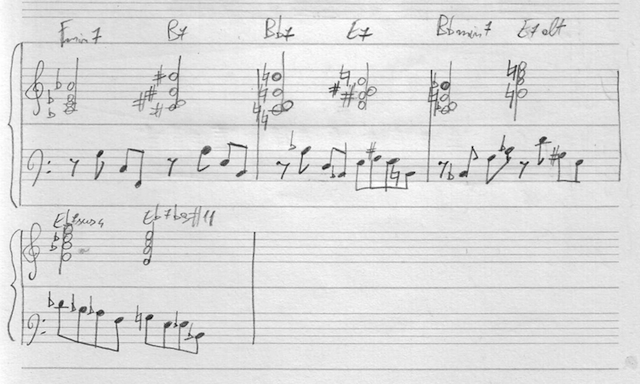 Fmin7 B7 Bb7 E7 Bbmin7 E7alt
Eb7sus4 Eb7b9#11